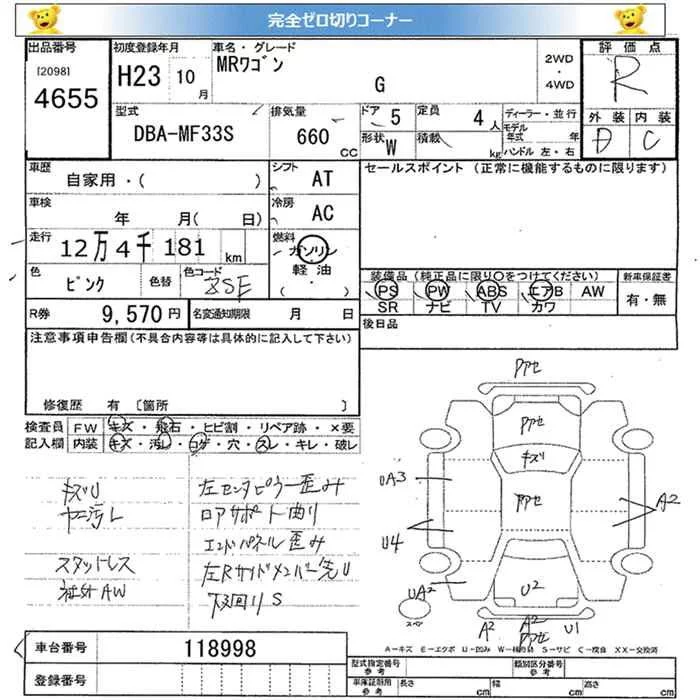 完全ゼロ切りコーナー
出品番号 初度登録年月 車名・グレード 評価点
[2098] 4655 H23 10月 MRワゴン G 2WD・4WD R
型式 DBA-MF33S 排気量 660 CC ドア 5 定員 4人 ディーラー・並行 外装 内装
形状 W 積載 kg モデル年式 年 ハンドル 左・右 D C
車歴 自家用・( ) シフト AT セールスポイント (正常に機能するものに限ります)
車検 年 月( 日) 冷房 AC
走行 12万4千181 km 燃料 ガソリン
軽油
( ・ )
色 ピンク 色替 色コード ZSE 装備品(純正品に限り〇をつけてください) 新車保証書
PS PW ABS エアB AW 有・無
SR ナビ TV カワ
R券 9,570円 名変通知期限 月 日 後日品
注意事項申告欄(不具合内容等は具体的に記入して下さい)
修復歴 有 〔箇所 〕
検査員 FW キズ・飛石・ヒビ割・リペア跡・×要
記入欄 内装 キズ・汚レ・コゲ・穴・スレ・キレ・破レ
キズU 左センタピラー歪み
ヤニ汚レ ロアサポート曲り
エンドパネル歪み
スタットレス 左Rサイドメンバー先U
社外AW 下回りS
Pアセ
Pアセ
キズ
UA3 Pアセ A2
U4
UA2 U2
スペア A2 A2 Pアセ U1
車台番号 118998
登録番号
型式指定番号 参考 類別区分番号 参考
車庫証明用 参考 長さ cm 幅 cm 高さ cm